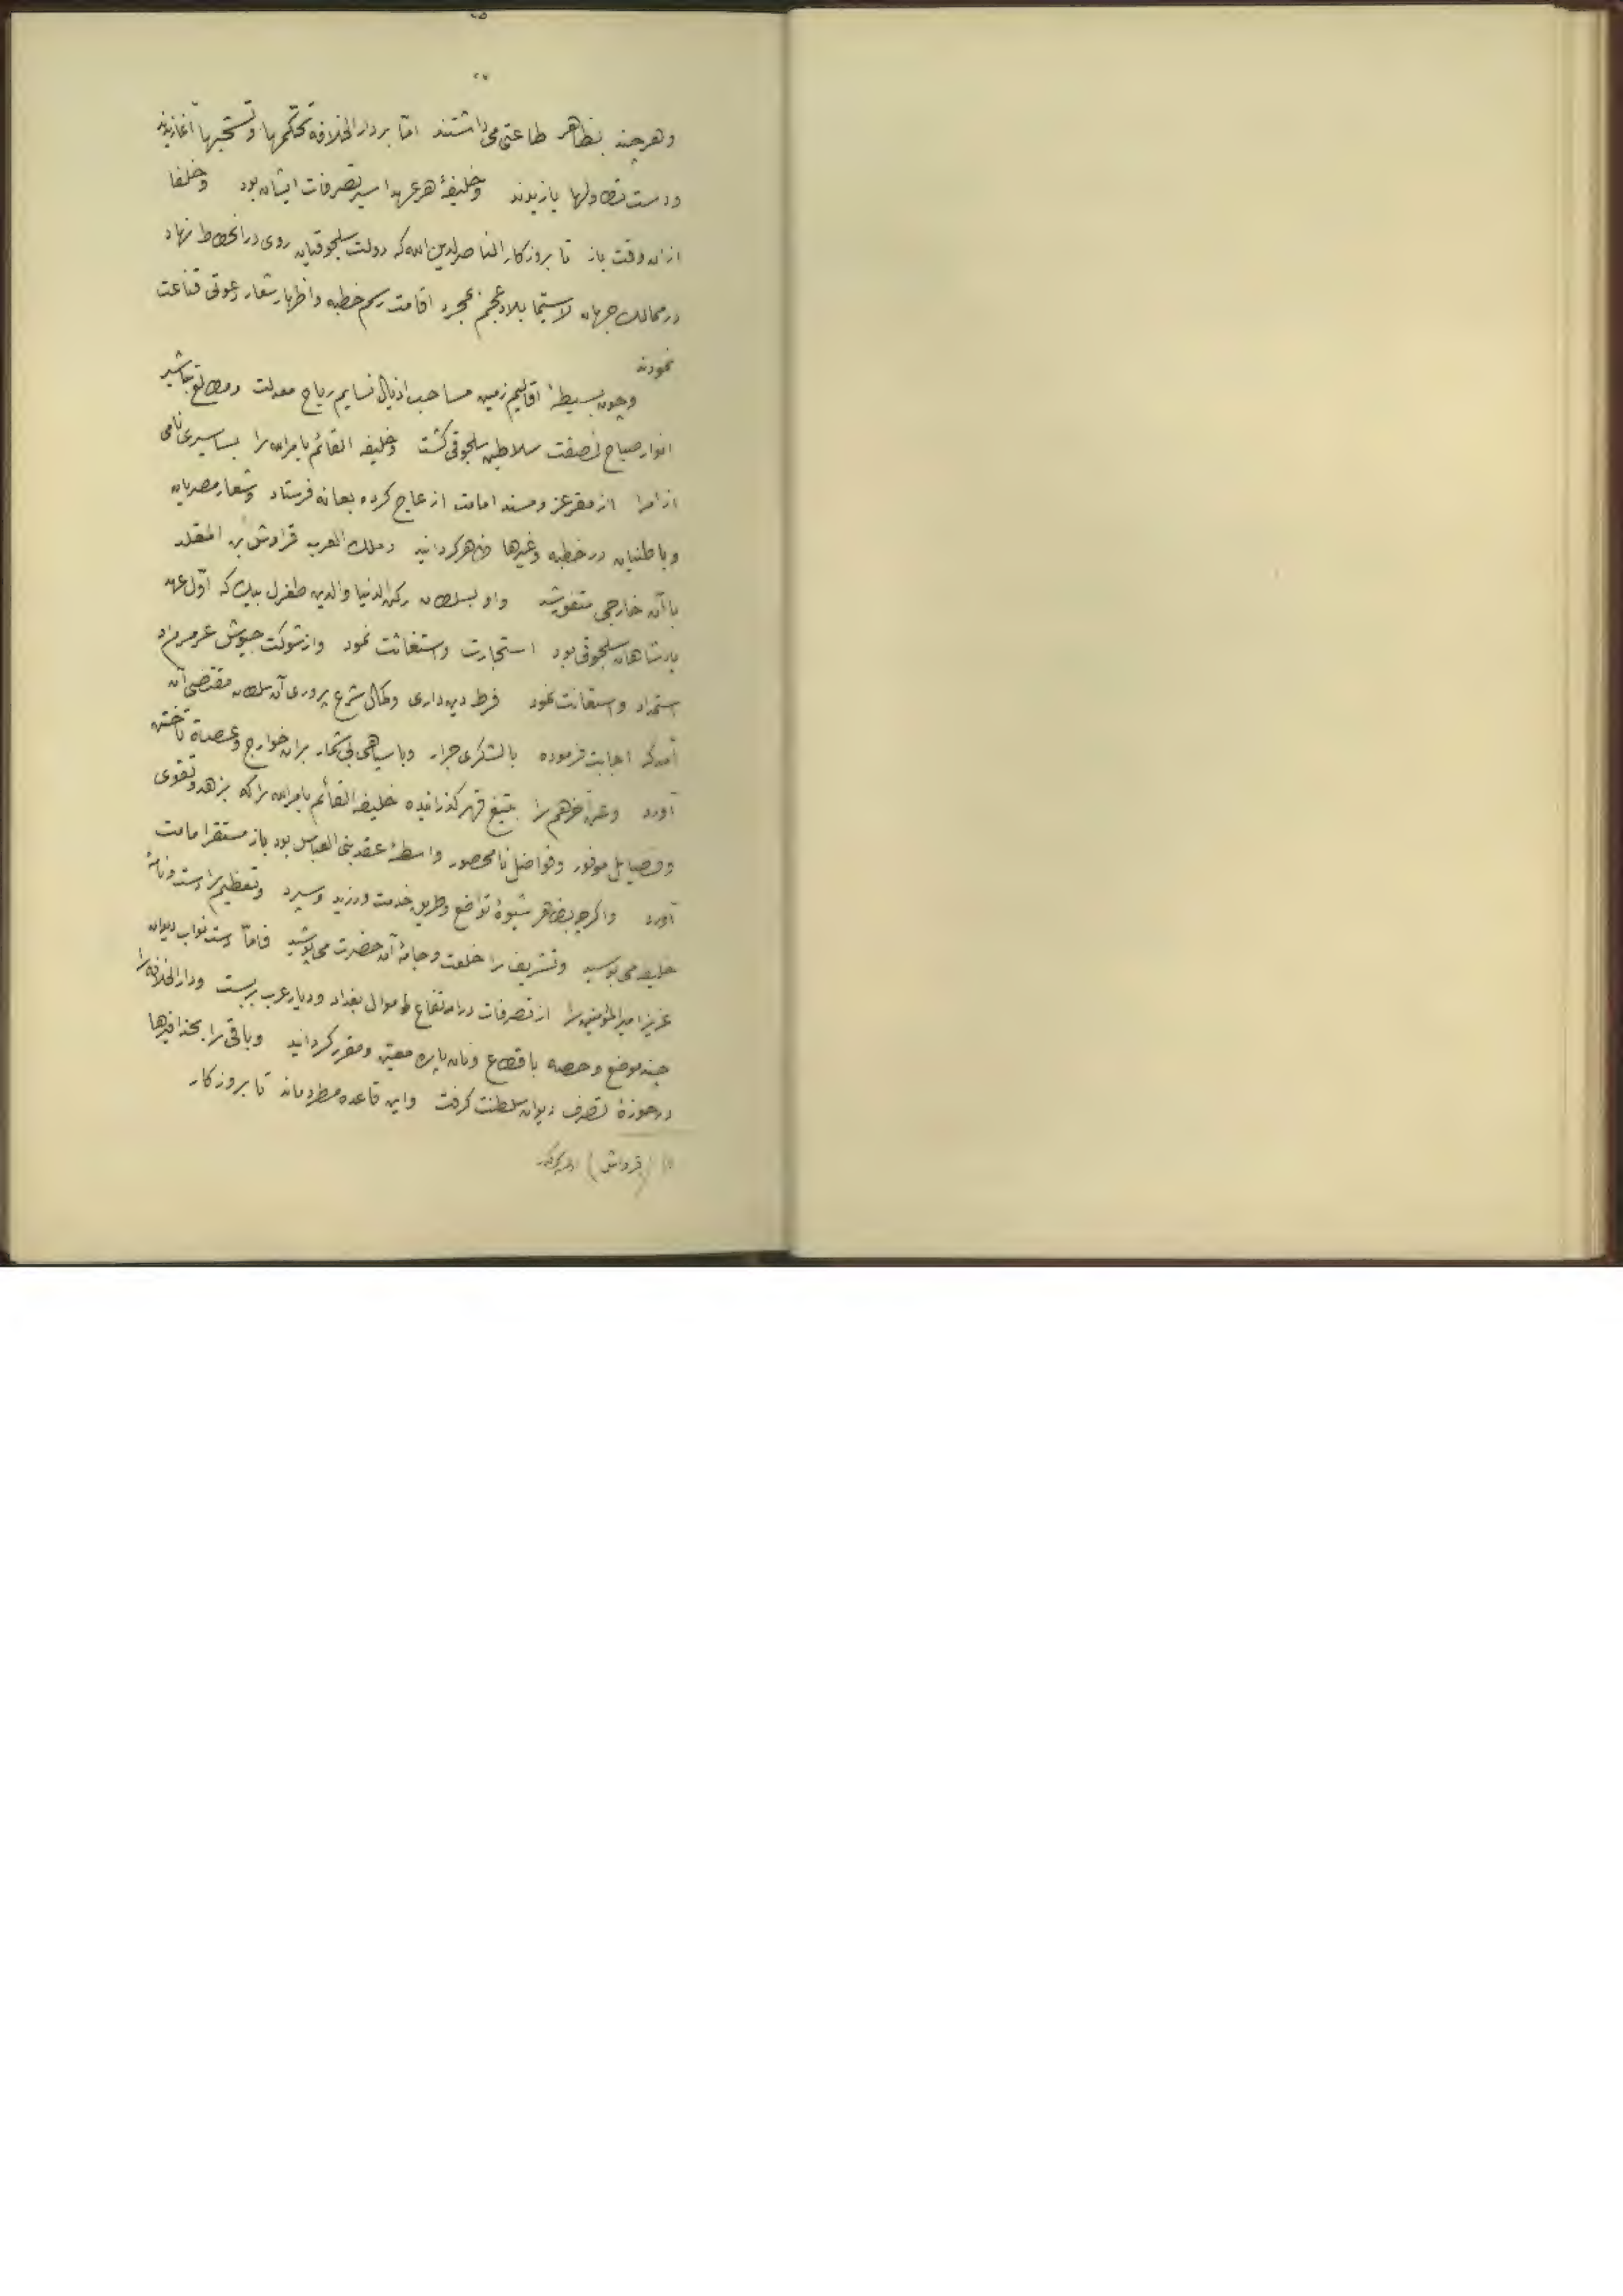 ۲۷
وهرچند بظاهر طاعتی می داشتند امّا بردار الخلافة تحکّمها وتسحّبها آغازیدند
ودست تطاولها یازیدند وخلیفهٔ هر عهد اسیر تصرفات ایشان بود وخلفا
ازان وقت باز تا بروزکار الناصر لدین الله که دولت سلجوقیان روی در انحطاط نهاد
در ممالک جهان لاسیّما بلاد عجم بمجرد اقامت رسم خطبه واظهار شعار دعوتی قناعت
نمودند
وچون بسیطهٔ اقالیم زمین مساحب اذیال نسایم ریاح معدلت ومطالع تباشیر
انوار صباح نصفت سلاطین سلجوقی کشت وخلیفه القائم بامرالله را بساسیری نامی
از امرا از مقر عز ومسند امامت ازعاج کرده بعانه فرستاد وشعار مصریان
وباطنیان در خطبه وغیرها ظاهر کردانید وملک العرب قراوش بن المقلد
باآن خارجی متفق شد واو بسلطان رکن الدنیا والدین طغرل بیک که اوّل عهد
پادشاهان سلجوقی بود استجارت واستغاثت نمود وازشوکت جیوش عرمرم او
استمداد واستعانت نمود فرط دین داری وکمال شرع پروری آن سلطان مقتضی آن
آمد که اجابت فرموده بالشکری جرار وباسپاهی بی شمار بران خوارج وعصاة تاختن
آورد وعن آخرهم را بتیغ قهر کذرانیده خلیفه القائم بامرالله را که بزهد وتقوی
وفضایل موفور وفواضل نامحصور واسطهٔ عقد بنی العباس بود باز مستقر امامت
آورد واکرچه بظاهر شیوهٔ تواضع وطریق خدمت ورزید وسپرد وتعظیم را دست ونامهٔ
خلیفه می بوسید وتشریف را خلعت وجامهٔ آن حضرت می پوشید فامّا دست نواب دیوان
عزیز امیرالمؤمنین را از تصرفات در ارتفاع واموال بغداد ودیار عرب بربست ودار الخلافه را
چند موضع وحصه باقطاع ونان پاره معین ومقرر کردانید وباقی را بحذافیرها
در حوزهٔ تصرف دیوان سلطنت کرفت واین قاعده مطرد ماند تا بروزکار
(۱) (قرواش)